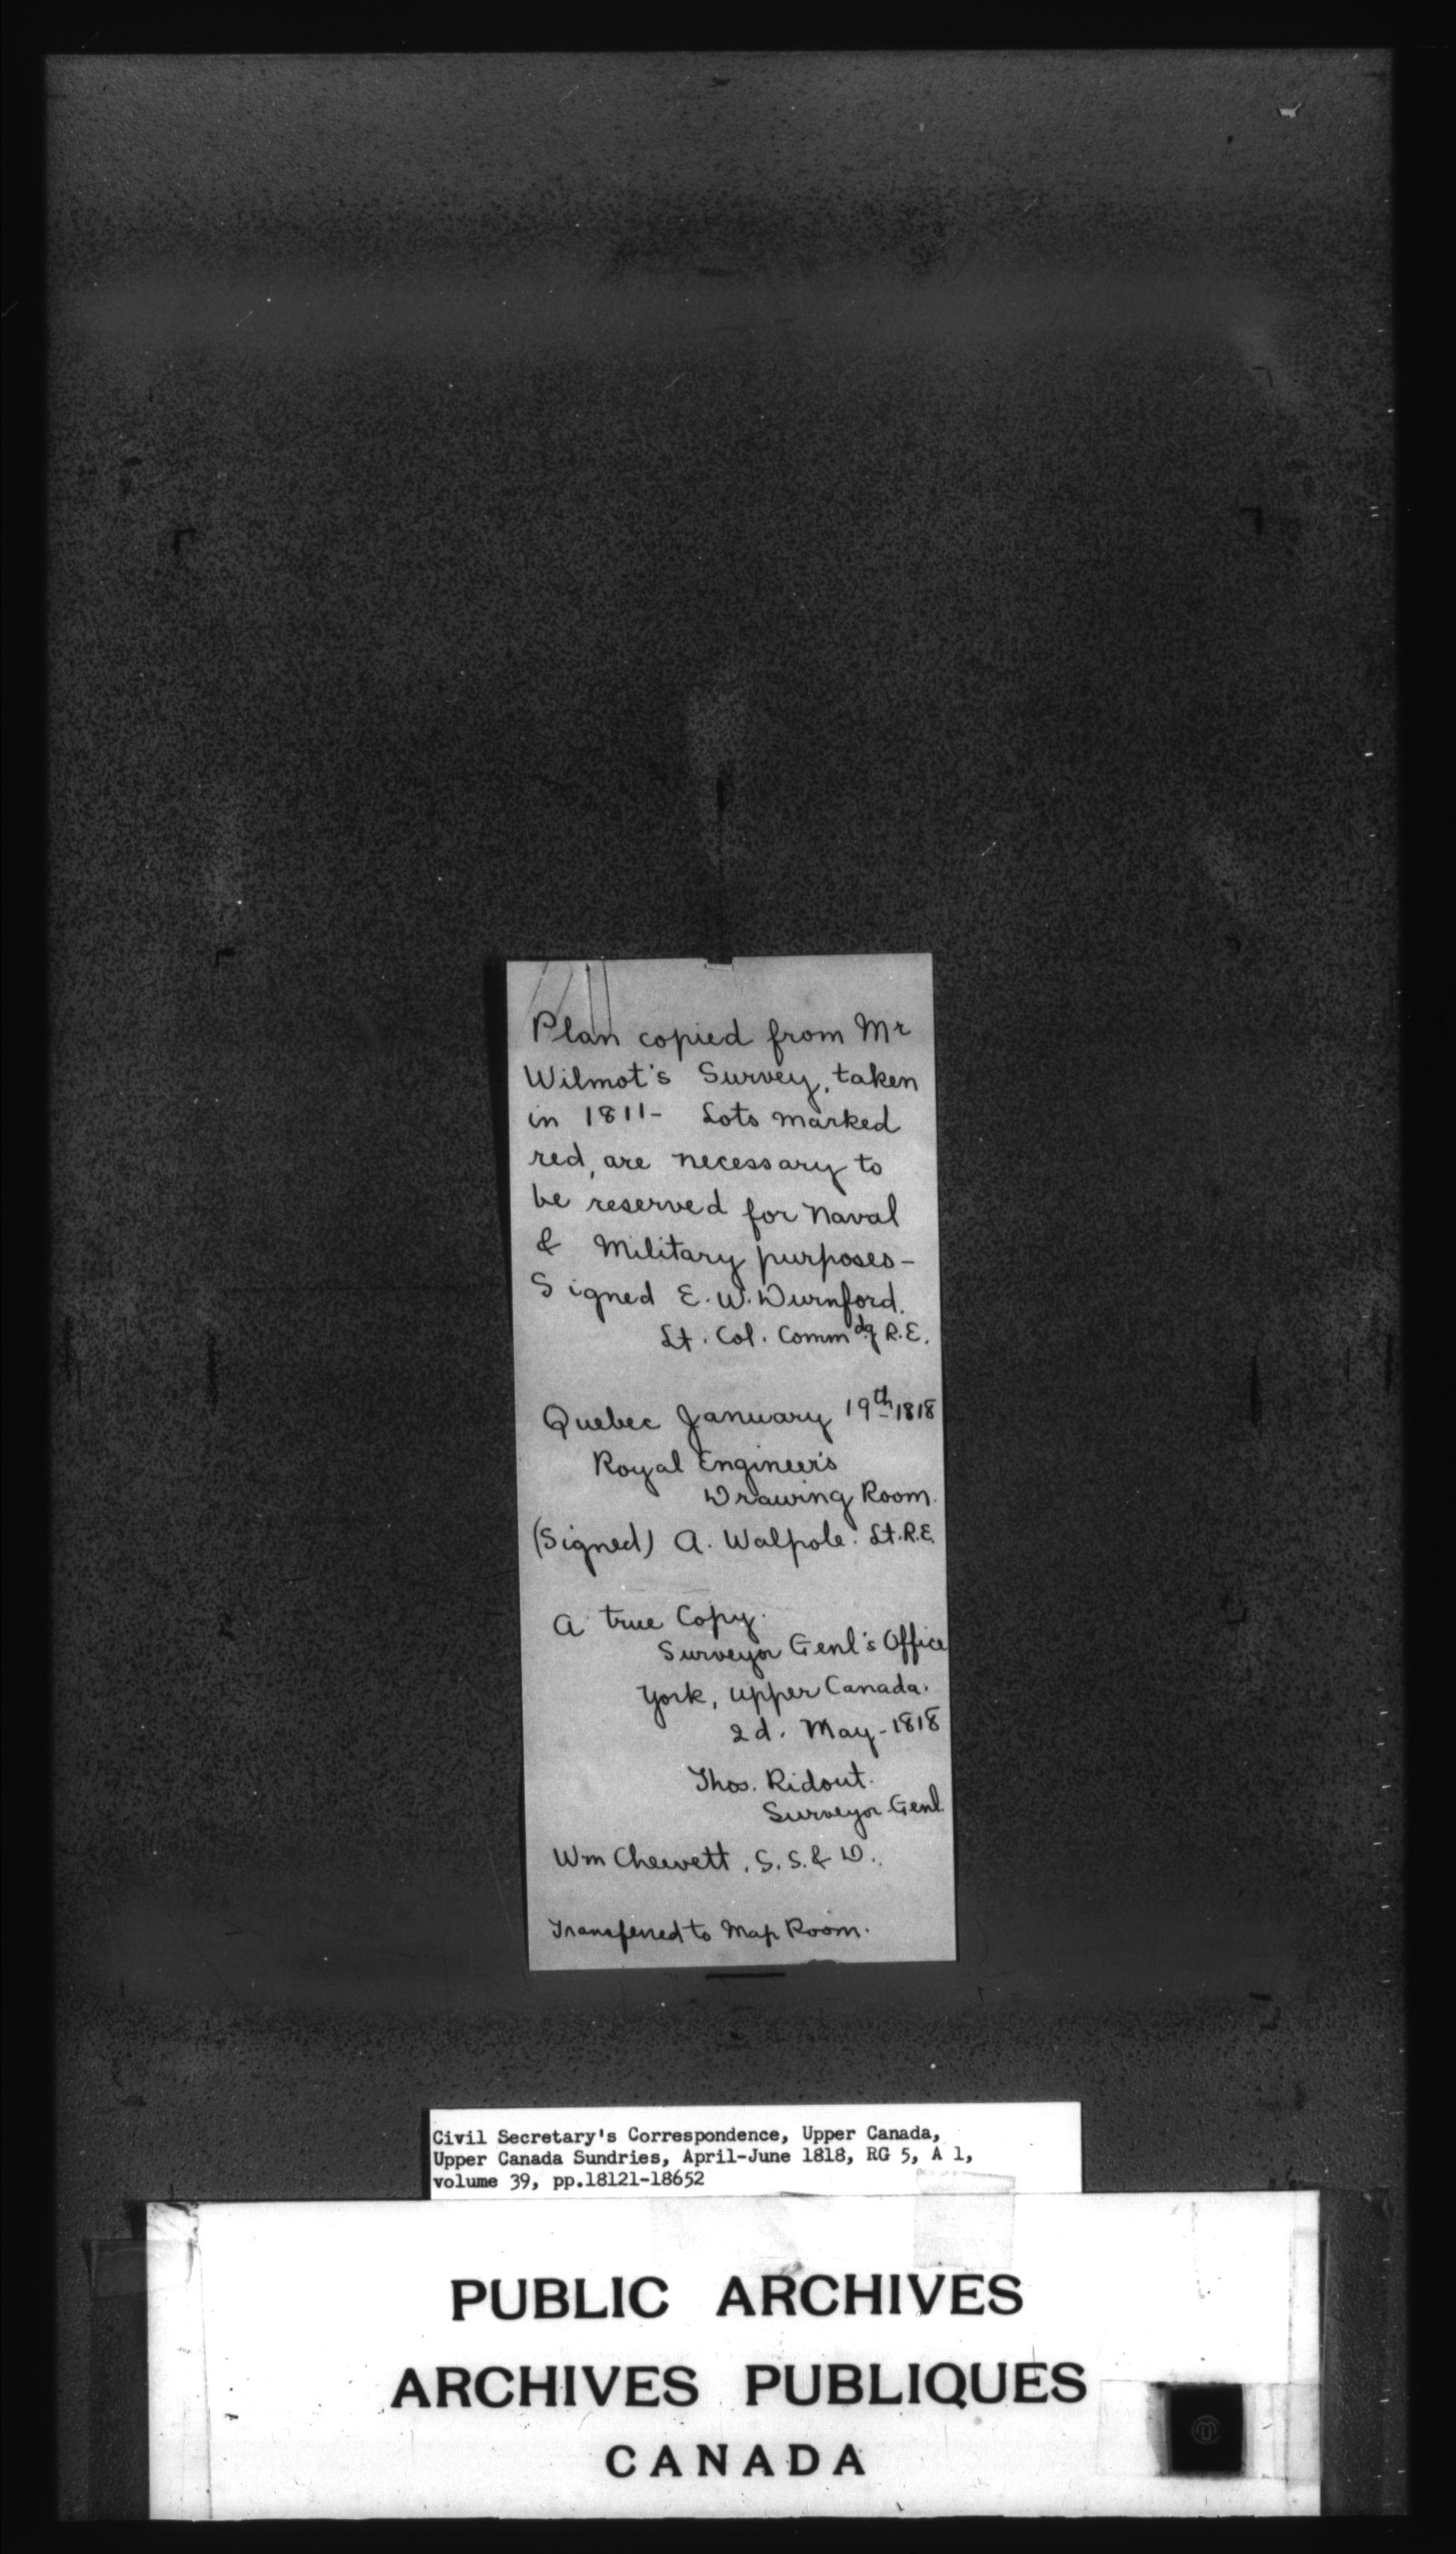 Plan copied from Mr
Wilmot's Survey, taken
in 1811- Lots marked
red, are necessary to
be reserved for Naval
& Military purposes-
Signed E. W. Durnford.
Lt. Col. Commdg R.E.
Quebec January 19th 1818
Royal Engineer's
Drawing Room.
(Signed) A. Walpole. Lt. R.E.
A true Copy.
Surveyor Genl's Office
York, Upper Canada.
2d. May-1818
Thos. Ridout.
Surveyor Genl.
Wm Chewett. S. S. & D.
Transferred to Map Room.
Civil Secretary's Correspondence, Upper Canada,
Upper Canada Sundries, April-June 1818, RG 5, A 1,
volume 39, pp.18121-18652
PUBLIC ARCHIVES
ARCHIVES PUBLIQUES
CANADA